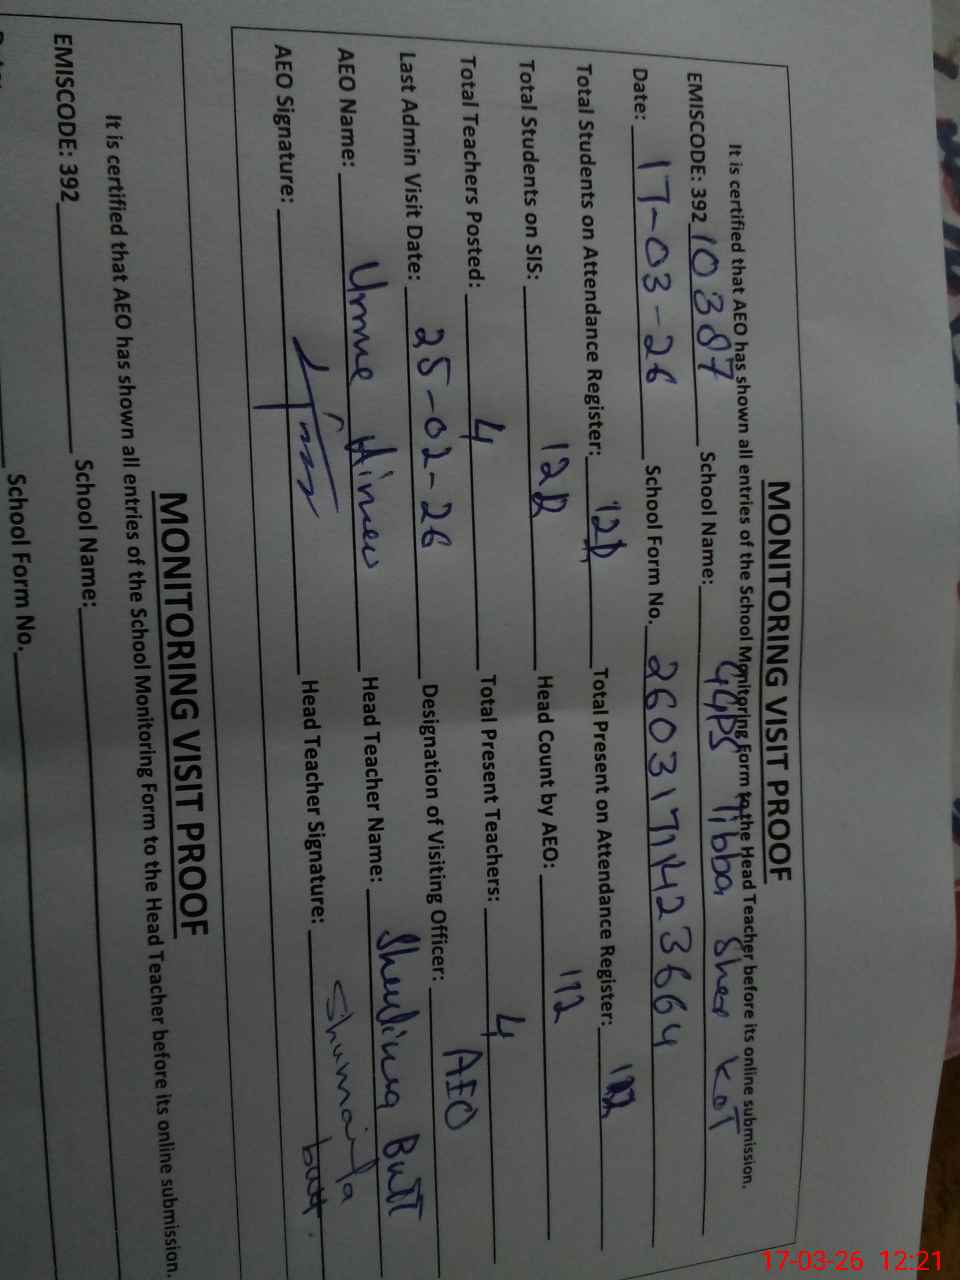 MONITORING VISIT PROOF
It is certified that AEO has shown all entries of the School Monitoring Form to the Head Teacher before its online submission.
EMISCODE: 392 10387 School Name: GGPS Tibba Sher Kot
Date: 17-03-26 School Form No. 26031711423664
Total Students on Attendance Register: 12 Total Present on Attendance Register:
Total Students on SIS: 12 Head Count by AEO: 112
Total Teachers Posted: 4 Total Present Teachers: 4
Last Admin Visit Date: 25-02-26 Designation of Visiting Officer: AEO
AEO Name: Umme Head Teacher Name: Butt
AEO Signature: Head Teacher Signature: Shumaila butt.
MONITORING VISIT PROOF
It is certified that AEO has shown all entries of the School Monitoring Form to the Head Teacher before its online submission.
EMISCODE: 392 School Name:
School Form No.
17-03-26 12:21